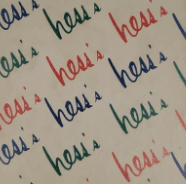 hess's hess's
hess's hess's hess's
hess's hess's
hess's hess's hess's
hess's hess's